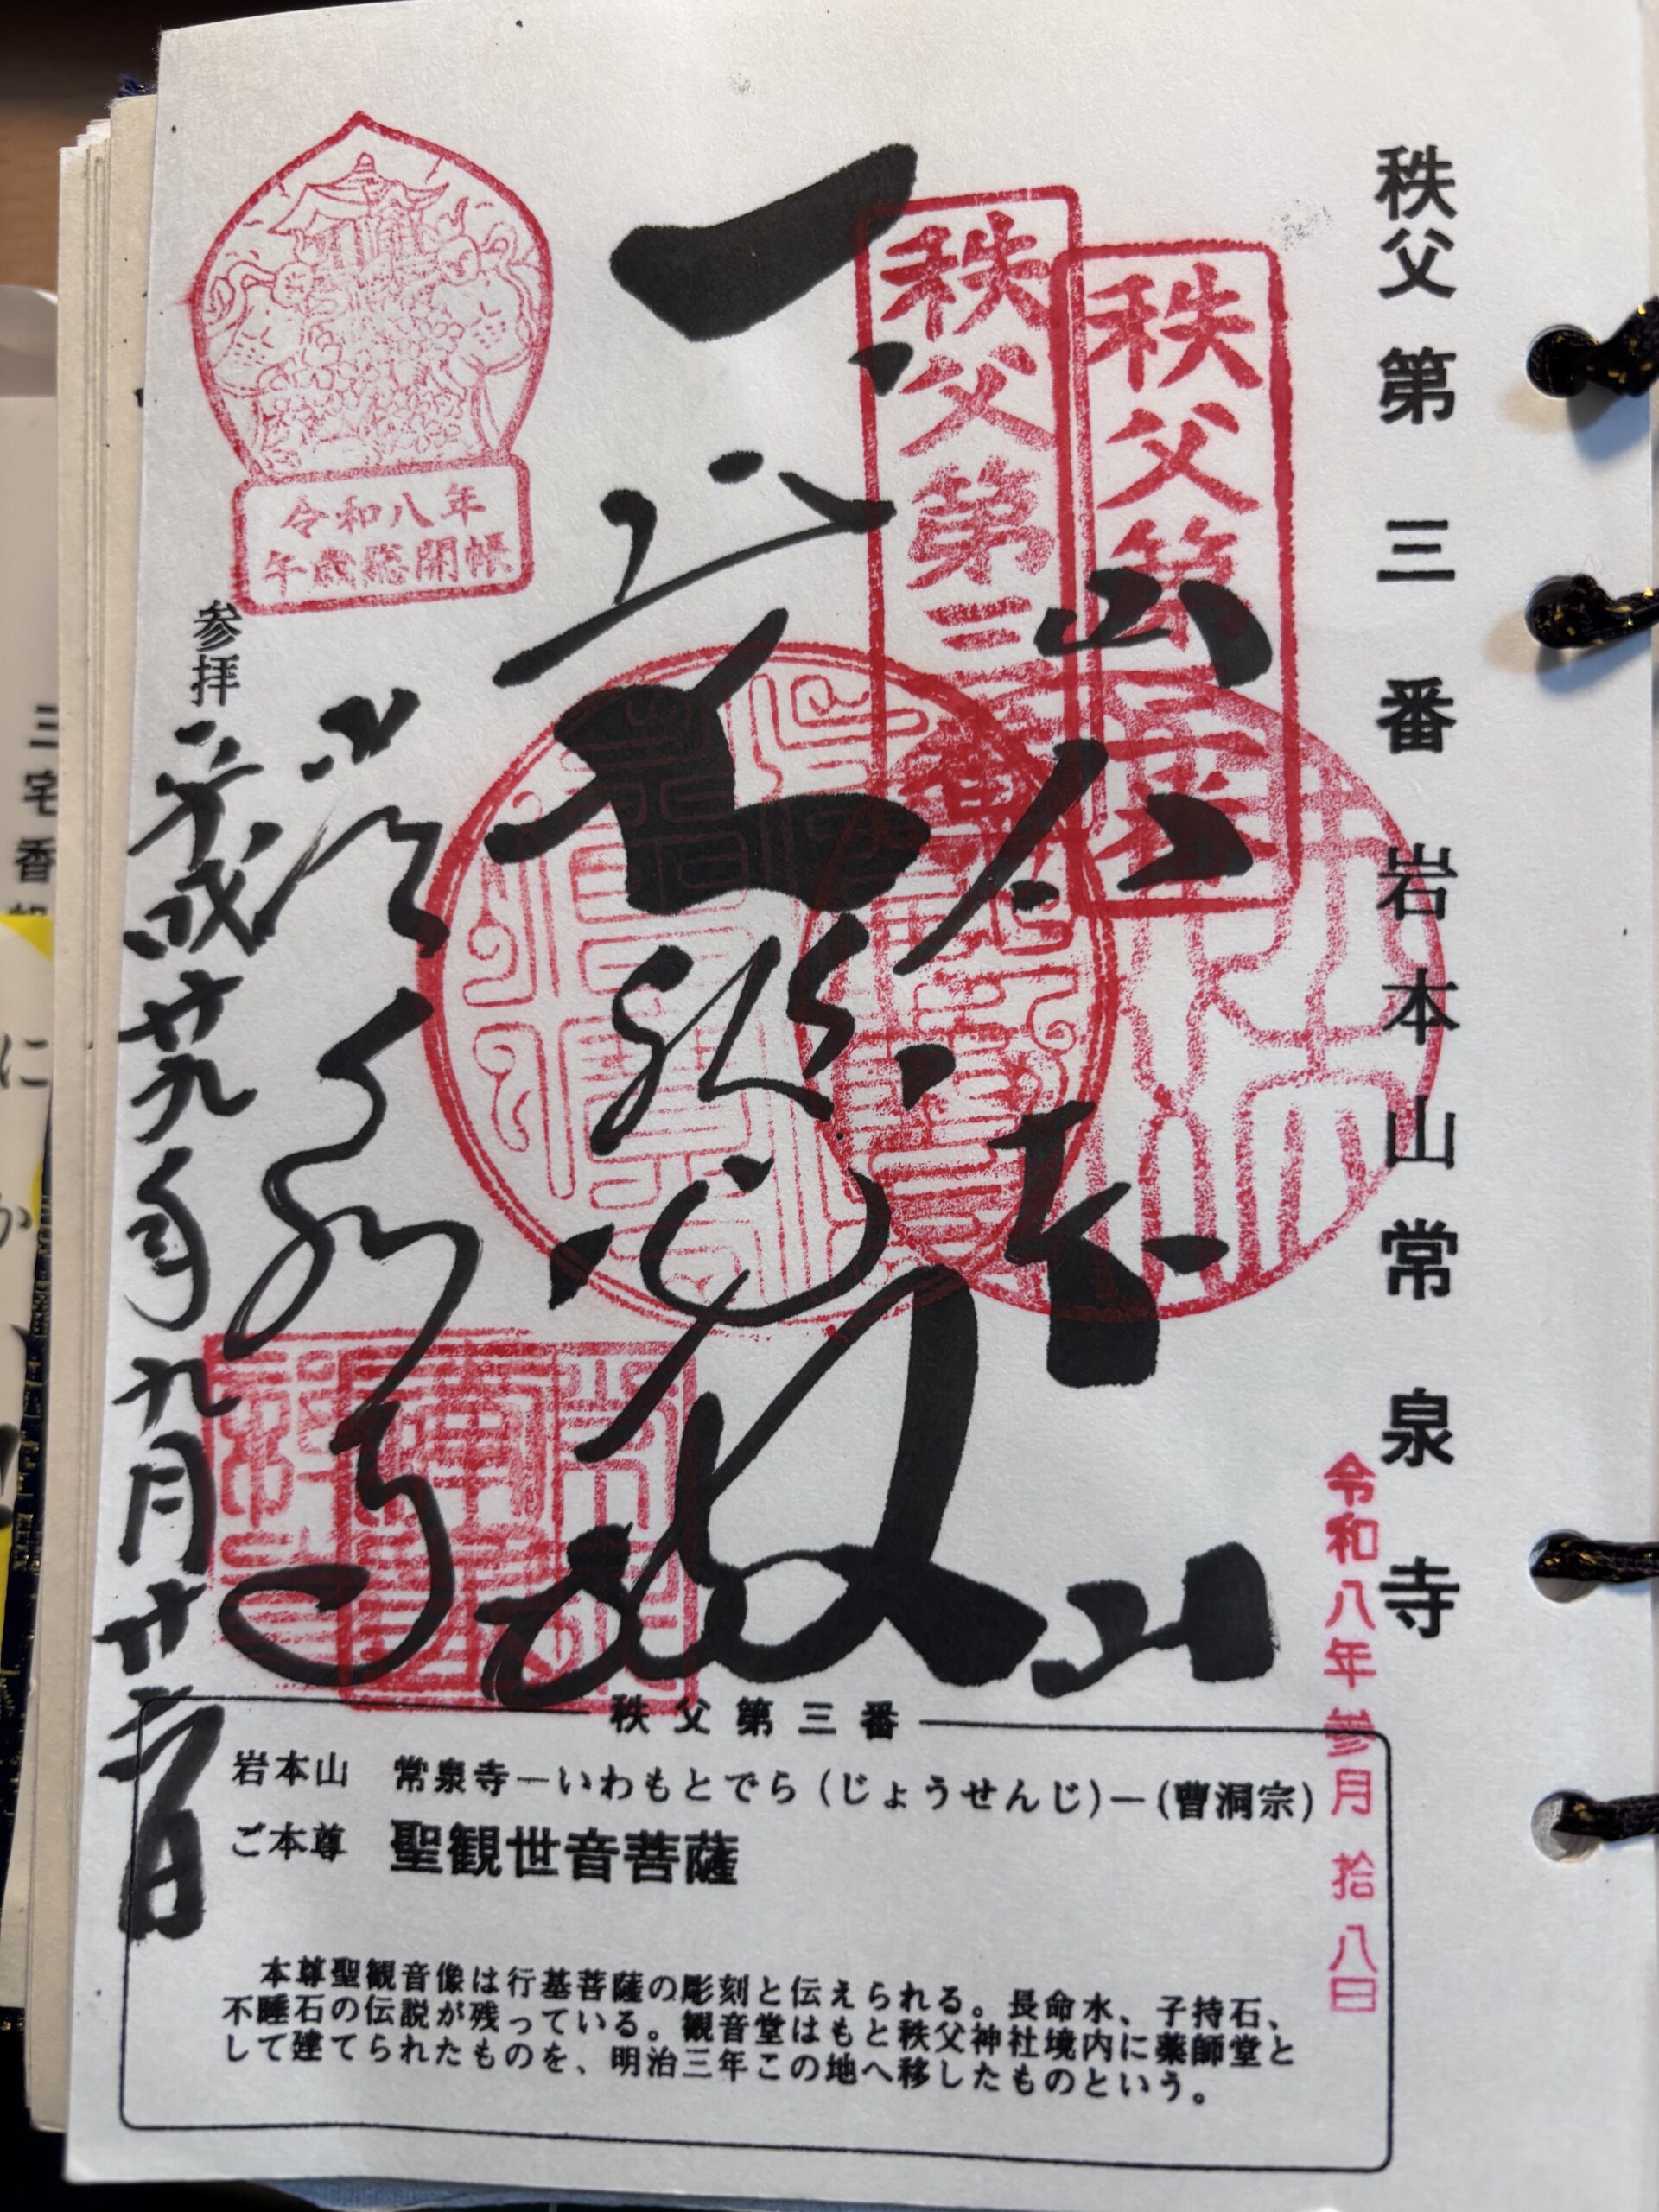 秩父第三番 岩本山常泉寺
令和八年参月拾八日
秩父第三番
秩父第三番
岩本山
大悲殿
常泉寺
令和八年
午歳総開帳
参拝
平成廿九年九月廿二日
秩父第三番
岩本山 常泉寺―いわもとでら(じょうせんじ)―(曹洞宗)
ご本尊 聖観世音菩薩
本尊聖観音像は行基菩薩の彫刻と伝えられる。長命水、子持石、
不睡石の伝説が残っている。観音堂はもと秩父神社境内に薬師堂と
して建てられたものを、明治三年この地へ移したものという。